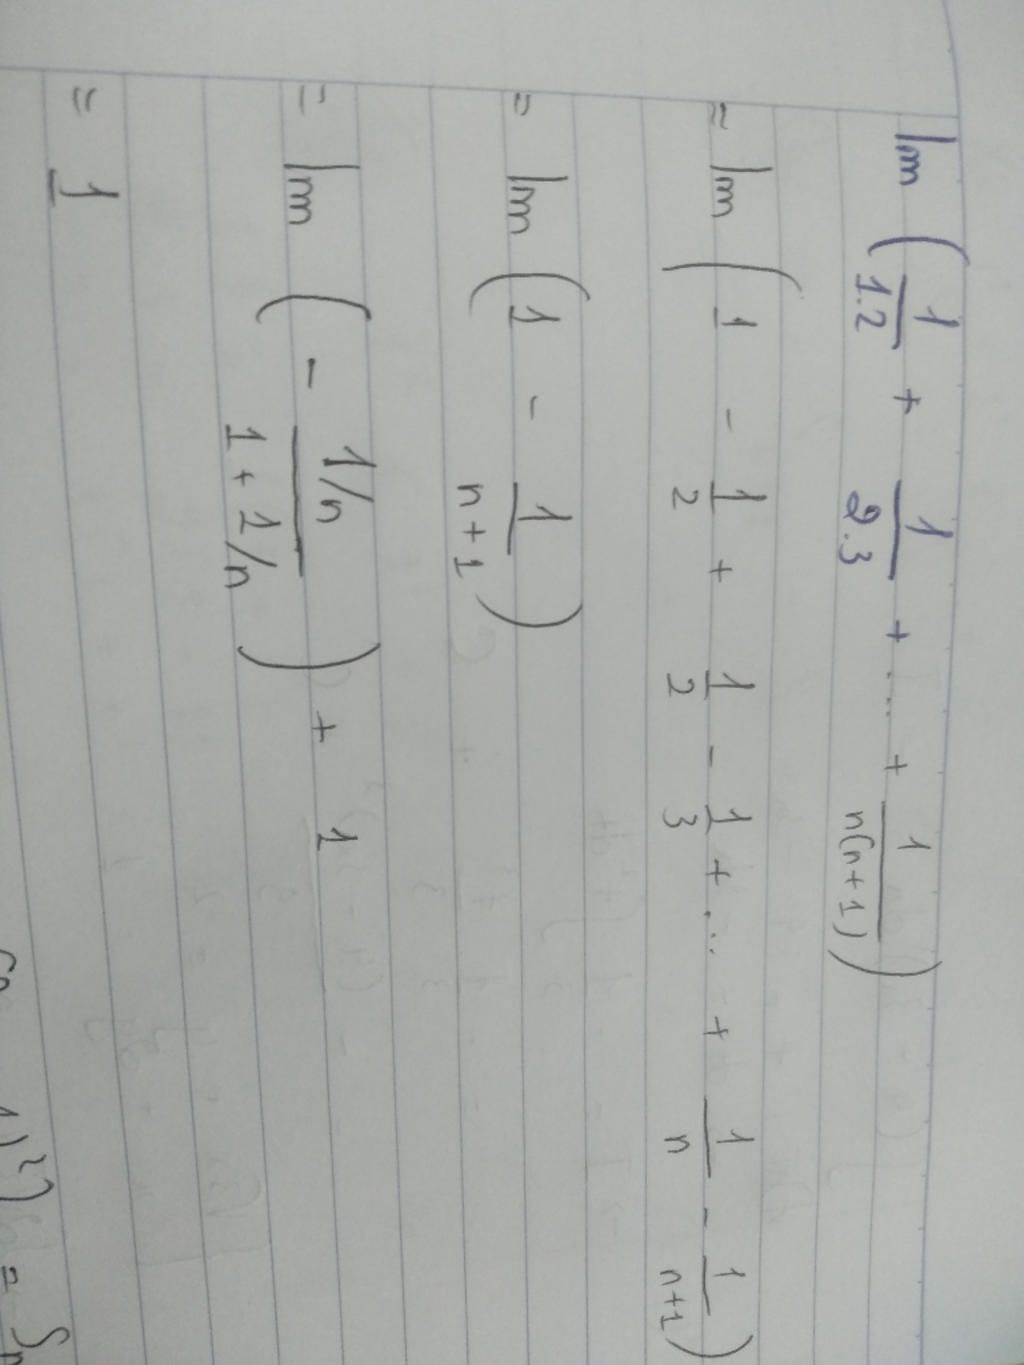 lim ( 1/1.2 + 1/2.3 + ... + 1/n(n+1) )
= lim ( 1 - 1/2 + 1/2 - 1/3 + ... + 1/n - 1/n+1 )
= lim ( 1 - 1/n+1 )
= lim ( - 1/n / 1 + 1/n ) + 1
= 1